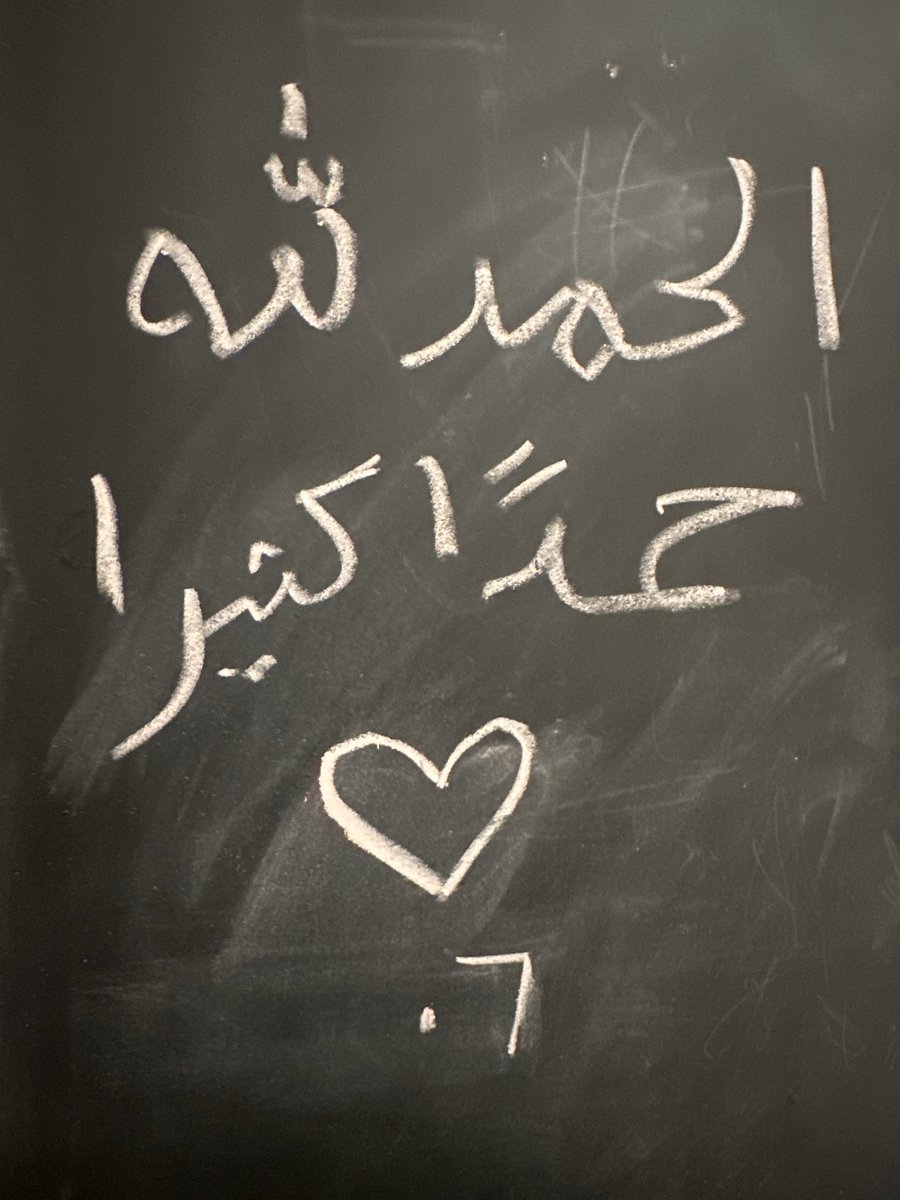 الحمد لله
حمدًا كثيرا